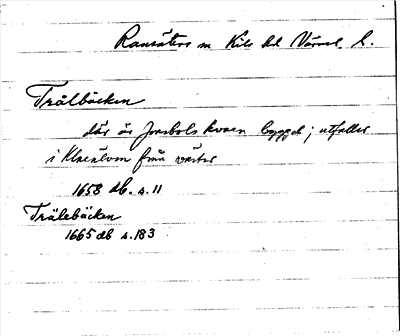 Ransäters sn Kils hd Värml. l.
Trälbäcken
där är Joesbols kvarn byggd; utfaller
i Klarälven från väster
1658 db. s. 11
Trälebäcken
1665 db s. 183